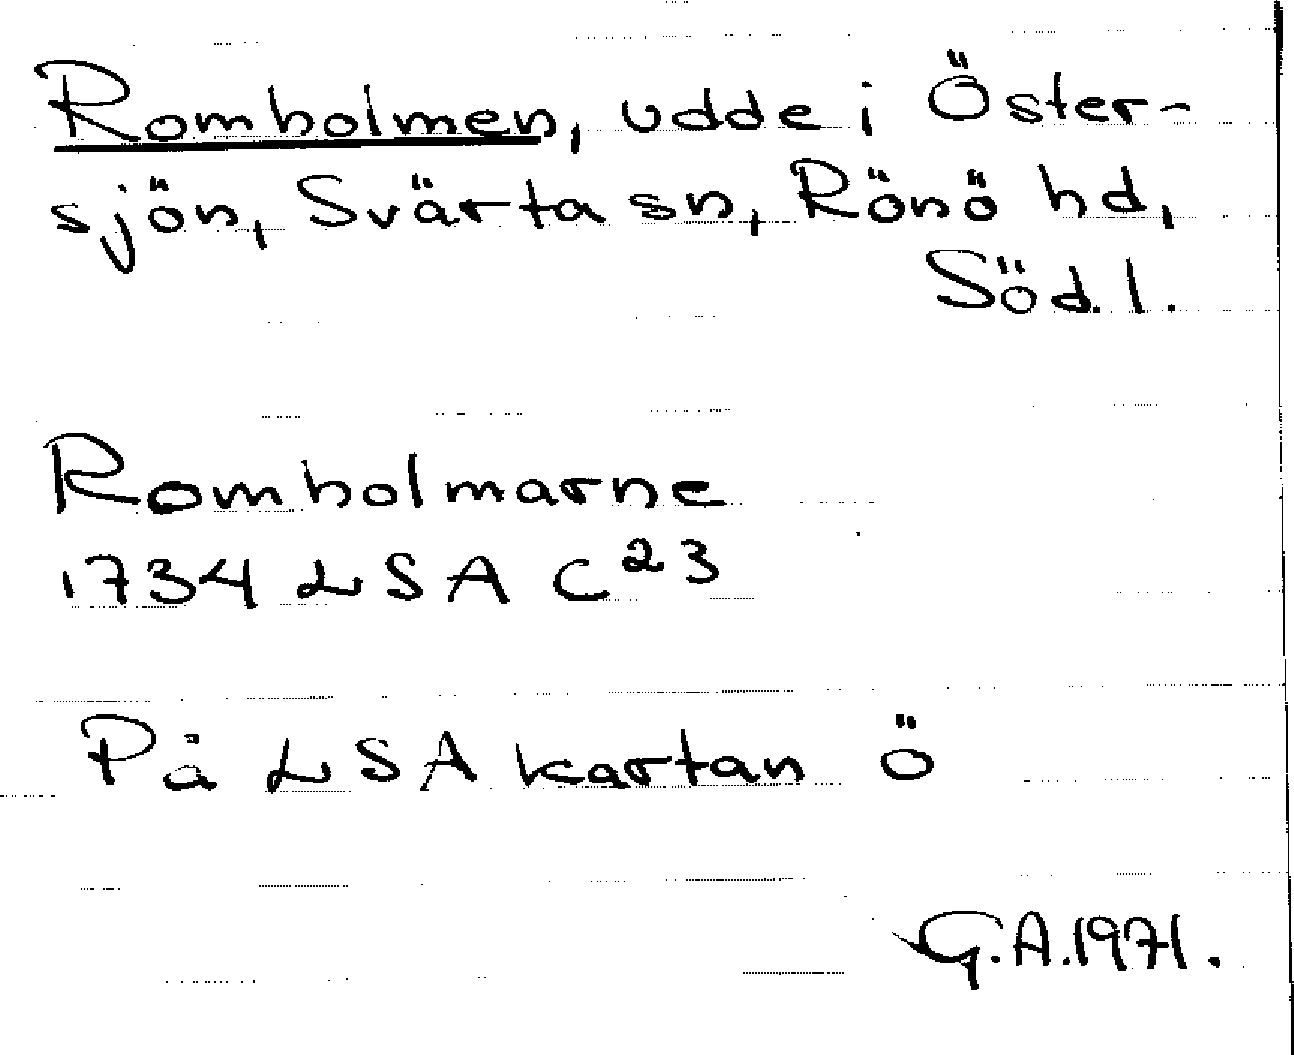 Romholmen, udde i Öster-
sjön, Svärta sn, Rönö hd,
Söd. l.
Romholmarne
1734 LSA C²³
På LSA kartan ö
G.A. 1971.